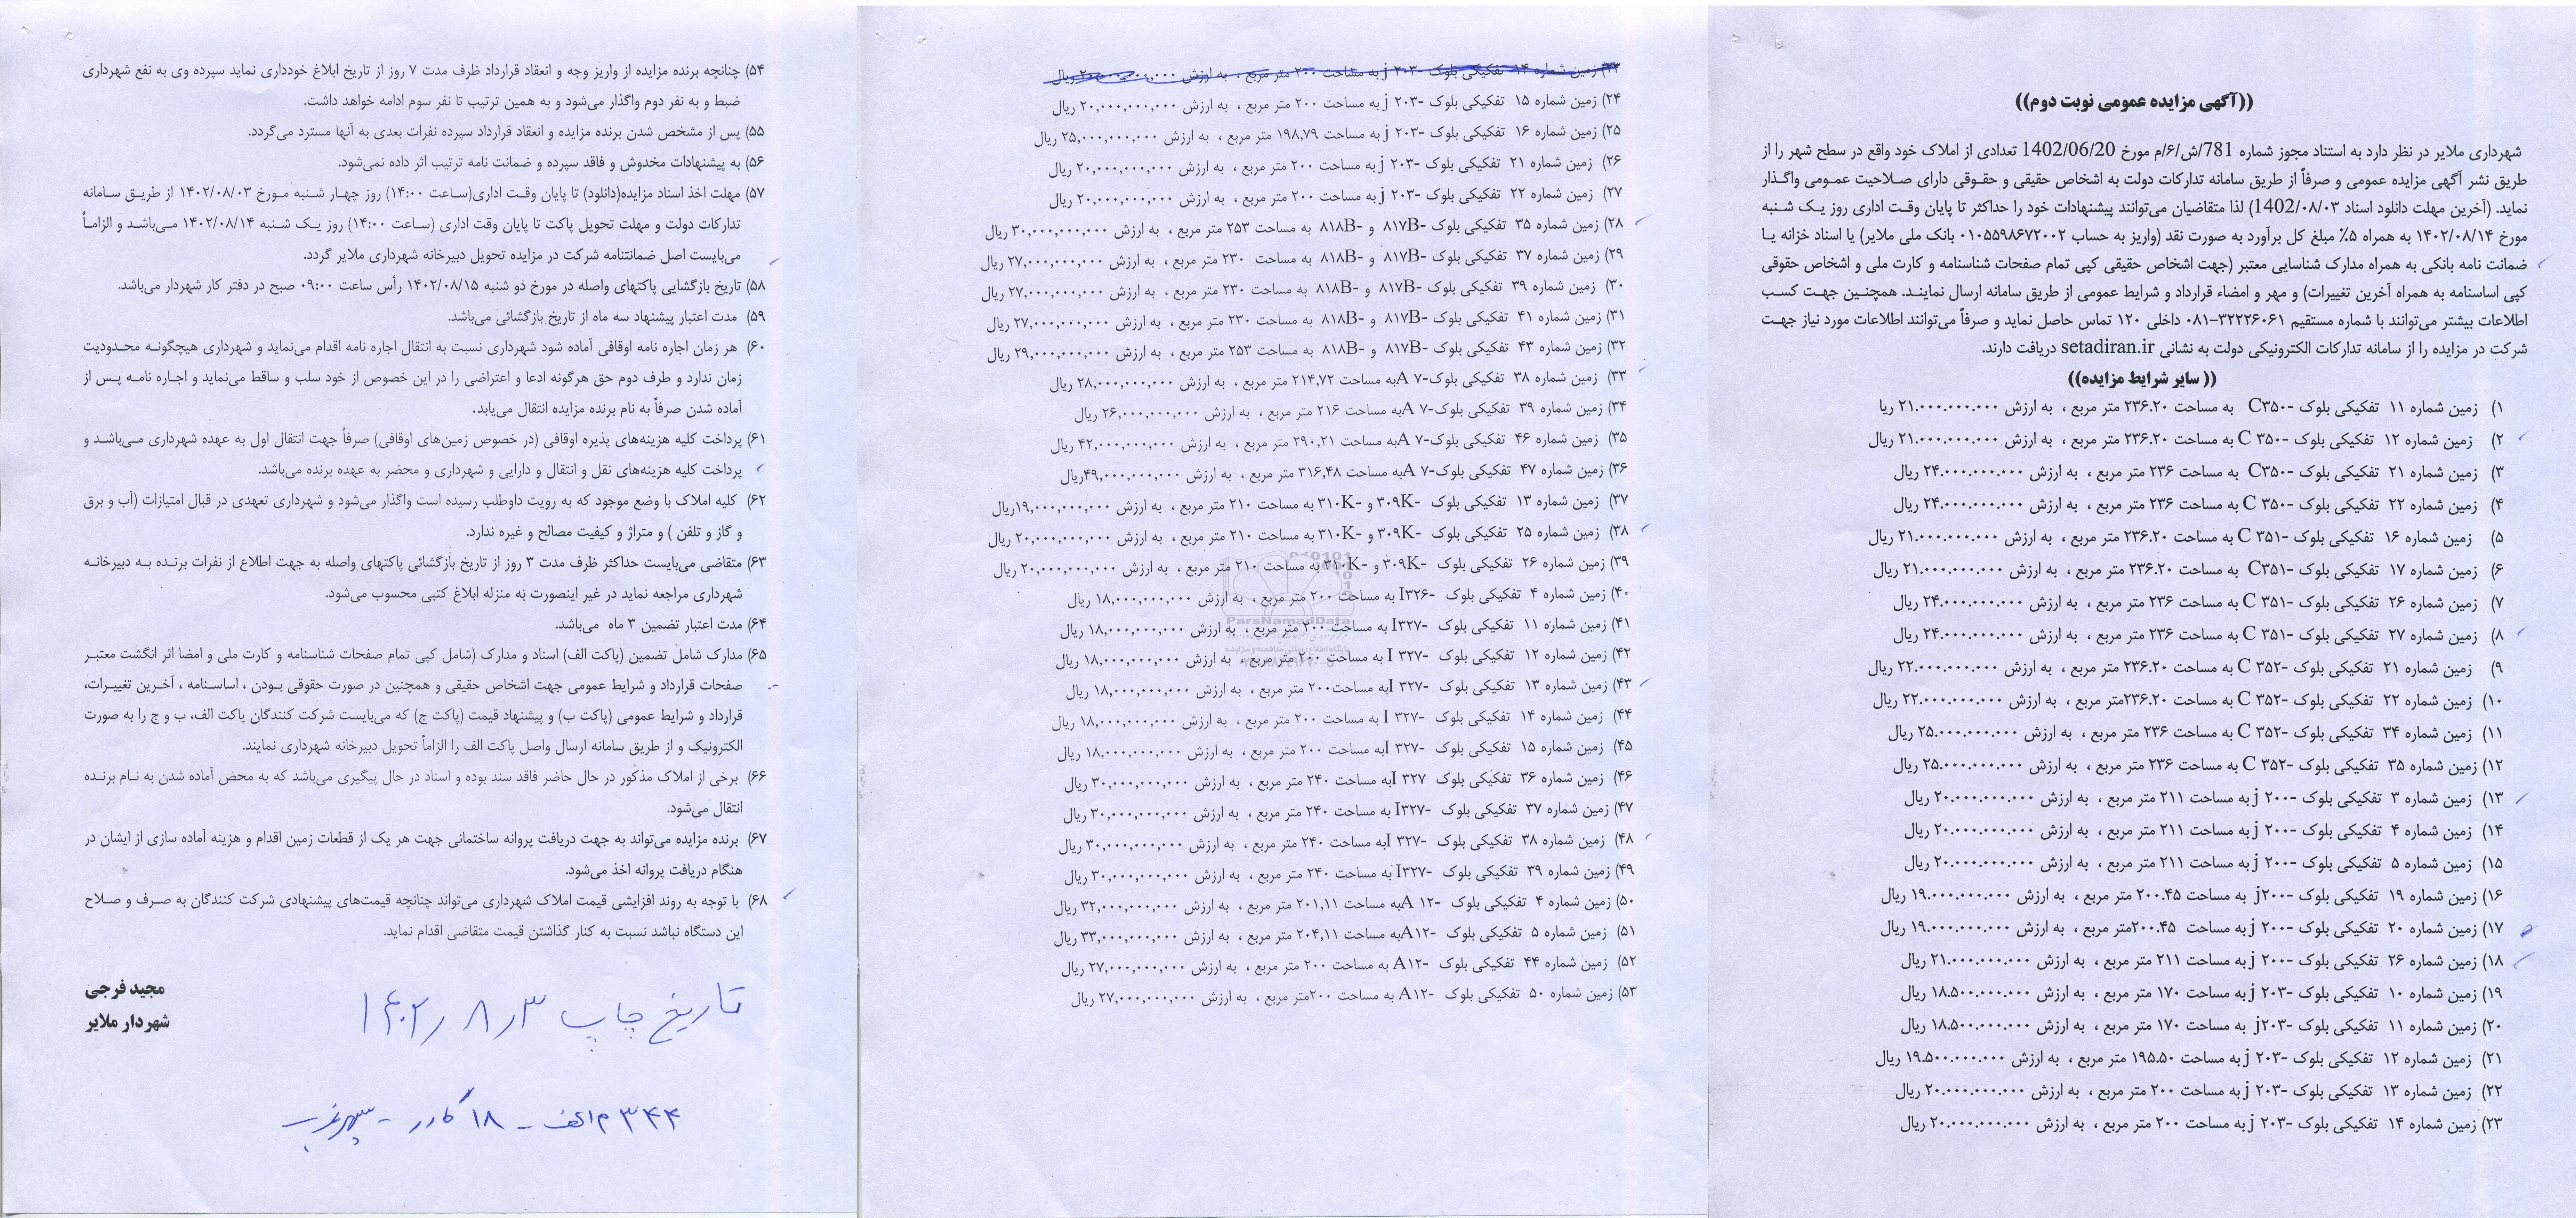 ((آگهی مزایده عمومی نوبت دوم))
شهرداری ملایر در نظر دارد به استناد مجوز شماره 781/ش/۶/م مورخ 1402/06/20 تعدادی از املاک خود واقع در سطح شهر را از
طریق نشر آگهی مزایده عمومی و صرفاً از طریق سامانه تدارکات دولت به اشخاص حقیقی و حقوقی دارای صلاحیت عمومی واگذار
نماید. (آخرین مهلت دانلود اسناد 1402/۰۸/۰۳) لذا متقاضیان می‌توانند پیشنهادات خود را حداکثر تا پایان وقت اداری روز یک شنبه
مورخ ۱۴۰۲/۰۸/۱۴ به همراه ۵٪ مبلغ کل برآورد به صورت نقد (واریز به حساب ۰۱۰۵۵۹۸۶۷۲۰۰۲ بانک ملی ملایر) یا اسناد خزانه یا
ضمانت نامه بانکی به همراه مدارک شناسایی معتبر (جهت اشخاص حقیقی کپی تمام صفحات شناسنامه و کارت ملی و اشخاص حقوقی
کپی اساسنامه به همراه آخرین تغییرات) و مهر و امضاء قرارداد و شرایط عمومی از طریق سامانه ارسال نمایند. همچنین جهت کسب
اطلاعات بیشتر می‌توانند با شماره مستقیم ۳۲۲۲۶۰۶۱-۰۸۱ داخلی ۱۲۰ تماس حاصل نماید و صرفاً می‌توانند اطلاعات مورد نیاز جهت
شرکت در مزایده را از سامانه تدارکات الکترونیکی دولت به نشانی setadiran.ir دریافت دارند.
(( سایر شرایط مزایده))
۱) زمین شماره ۱۱ تفکیکی بلوک -C۳۵۰ به مساحت ۲۳۶.۲۰ متر مربع ، به ارزش ۲۱.۰۰۰.۰۰۰.۰۰۰ ریا
۲) زمین شماره ۱۲ تفکیکی بلوک -۳۵۰ C به مساحت ۲۳۶.۲۰ متر مربع ، به ارزش ۲۱.۰۰۰.۰۰۰.۰۰۰ ریال
۳) زمین شماره ۲۱ تفکیکی بلوک -C۳۵۰ به مساحت ۲۳۶ متر مربع ، به ارزش ۲۴.۰۰۰.۰۰۰.۰۰۰ ریال
۴) زمین شماره ۲۲ تفکیکی بلوک -۳۵۰ C به مساحت ۲۳۶ متر مربع ، به ارزش ۲۴.۰۰۰.۰۰۰.۰۰۰ ریال
۵) زمین شماره ۱۶ تفکیکی بلوک -۳۵۱ C به مساحت ۲۳۶.۲۰ متر مربع ، به ارزش ۲۱.۰۰۰.۰۰۰.۰۰۰ ریال
۶) زمین شماره ۱۷ تفکیکی بلوک -C۳۵۱ به مساحت ۲۳۶.۲۰ متر مربع ، به ارزش ۲۱.۰۰۰.۰۰۰.۰۰۰ ریال
۷) زمین شماره ۲۶ تفکیکی بلوک -۳۵۱ C به مساحت ۲۳۶ متر مربع ، به ارزش ۲۴.۰۰۰.۰۰۰.۰۰۰ ریال
۸) زمین شماره ۲۷ تفکیکی بلوک -۳۵۱ C به مساحت ۲۳۶ متر مربع ، به ارزش ۲۴.۰۰۰.۰۰۰.۰۰۰ ریال
۹) زمین شماره ۲۱ تفکیکی بلوک -۳۵۲ C به مساحت ۲۳۶.۲۰ متر مربع ، به ارزش ۲۲.۰۰۰.۰۰۰.۰۰۰ ریال
۱۰) زمین شماره ۲۲ تفکیکی بلوک -۳۵۲ C به مساحت ۲۳۶.۲۰متر مربع ، به ارزش ۲۲.۰۰۰.۰۰۰.۰۰۰ ریال
۱۱) زمین شماره ۳۴ تفکیکی بلوک -۳۵۲ C به مساحت ۲۳۶ متر مربع ، به ارزش ۲۵.۰۰۰.۰۰۰.۰۰۰ ریال
۱۲) زمین شماره ۳۵ تفکیکی بلوک -۳۵۲ C به مساحت ۲۳۶ متر مربع ، به ارزش ۲۵.۰۰۰.۰۰۰.۰۰۰ ریال
۱۳) زمین شماره ۳ تفکیکی بلوک -۲۰۰ j به مساحت ۲۱۱ متر مربع ، به ارزش ۲۰.۰۰۰.۰۰۰.۰۰۰ ریال
۱۴) زمین شماره ۴ تفکیکی بلوک -۲۰۰ j به مساحت ۲۱۱ متر مربع ، به ارزش ۲۰.۰۰۰.۰۰۰.۰۰۰ ریال
۱۵) زمین شماره ۵ تفکیکی بلوک -۲۰۰ j به مساحت ۲۱۱ متر مربع ، به ارزش ۲۰.۰۰۰.۰۰۰.۰۰۰ ریال
۱۶) زمین شماره ۱۹ تفکیکی بلوک -j۲۰۰ به مساحت ۲۰۰.۴۵ متر مربع ، به ارزش ۱۹.۰۰۰.۰۰۰.۰۰۰ ریال
۱۷) زمین شماره ۲۰ تفکیکی بلوک -۲۰۰ j به مساحت ۲۰۰.۴۵متر مربع ، به ارزش ۱۹.۰۰۰.۰۰۰.۰۰۰ ریال
۱۸) زمین شماره ۲۶ تفکیکی بلوک -۲۰۰ j به مساحت ۲۱۱ متر مربع ، به ارزش ۲۱.۰۰۰.۰۰۰.۰۰۰ ریال
۱۹) زمین شماره ۱۰ تفکیکی بلوک -۲۰۳ j به مساحت ۱۷۰ متر مربع ، به ارزش ۱۸.۵۰۰.۰۰۰.۰۰۰ ریال
۲۰) زمین شماره ۱۱ تفکیکی بلوک -j۲۰۳ به مساحت ۱۷۰ متر مربع ، به ارزش ۱۸.۵۰۰.۰۰۰.۰۰۰ ریال
۲۱) زمین شماره ۱۲ تفکیکی بلوک -۲۰۳ j به مساحت ۱۹۵.۵۰ متر مربع ، به ارزش ۱۹.۵۰۰.۰۰۰.۰۰۰ ریال
۲۲) زمین شماره ۱۳ تفکیکی بلوک -۲۰۳ j به مساحت ۲۰۰ متر مربع ، به ارزش ۲۰.۰۰۰.۰۰۰.۰۰۰ ریال
۲۳) زمین شماره ۱۴ تفکیکی بلوک -۲۰۳ j به مساحت ۲۰۰ متر مربع ، به ارزش ۲۰.۰۰۰.۰۰۰.۰۰۰ ریال
۲۳) زمین شماره ۱۴ تفکیکی بلوک -۲۰۳ j به مساحت ۲۰۰ متر مربع ، به ارزش ۲۰,۰۰۰,۰۰۰,۰۰۰ ریال
۲۴) زمین شماره ۱۵ تفکیکی بلوک -۲۰۳ j به مساحت ۲۰۰ متر مربع ، به ارزش ۲۰,۰۰۰,۰۰۰,۰۰۰ ریال
۲۵) زمین شماره ۱۶ تفکیکی بلوک -۲۰۳ j به مساحت ۱۹۸,۷۹ متر مربع ، به ارزش ۲۵,۰۰۰,۰۰۰,۰۰۰ ریال
۲۶) زمین شماره ۲۱ تفکیکی بلوک -۲۰۳ j به مساحت ۲۰۰ متر مربع ، به ارزش ۲۰,۰۰۰,۰۰۰,۰۰۰ ریال
۲۷) زمین شماره ۲۲ تفکیکی بلوک -۲۰۳ j به مساحت ۲۰۰ متر مربع ، به ارزش ۲۰,۰۰۰,۰۰۰,۰۰۰ ریال
۲۸) زمین شماره ۳۵ تفکیکی بلوک -۸۱۷B و -۸۱۸B به مساحت ۲۵۳ متر مربع ، به ارزش ۳۰,۰۰۰,۰۰۰,۰۰۰ ریال
۲۹) زمین شماره ۳۷ تفکیکی بلوک -۸۱۷B و -۸۱۸B به مساحت ۲۳۰ متر مربع ، به ارزش ۲۷,۰۰۰,۰۰۰,۰۰۰ ریال
۳۰) زمین شماره ۳۹ تفکیکی بلوک -۸۱۷B و -۸۱۸B به مساحت ۲۳۰ متر مربع ، به ارزش ۲۷,۰۰۰,۰۰۰,۰۰۰ ریال
۳۱) زمین شماره ۴۱ تفکیکی بلوک -۸۱۷B و -۸۱۸B به مساحت ۲۳۰ متر مربع ، به ارزش ۲۷,۰۰۰,۰۰۰,۰۰۰ ریال
۳۲) زمین شماره ۴۳ تفکیکی بلوک -۸۱۷B و -۸۱۸B به مساحت ۲۵۳ متر مربع ، به ارزش ۲۹,۰۰۰,۰۰۰,۰۰۰ ریال
۳۳) زمین شماره ۳۸ تفکیکی بلوک-۷ Aبه مساحت ۲۱۴,۷۲ متر مربع ، به ارزش ۲۸,۰۰۰,۰۰۰,۰۰۰ ریال
۳۴) زمین شماره ۳۹ تفکیکی بلوک-۷ Aبه مساحت ۲۱۶ متر مربع ، به ارزش ۲۶,۰۰۰,۰۰۰,۰۰۰ ریال
۳۵) زمین شماره ۴۶ تفکیکی بلوک-۷ Aبه مساحت ۲۹۰,۲۱ متر مربع ، به ارزش ۴۲,۰۰۰,۰۰۰,۰۰۰ ریال
۳۶) زمین شماره ۴۷ تفکیکی بلوک-۷ Aبه مساحت ۳۱۶,۴۸ متر مربع ، به ارزش ۴۹,۰۰۰,۰۰۰,۰۰۰ریال
۳۷) زمین شماره ۱۳ تفکیکی بلوک -۳۰۹K و -۳۱۰K به مساحت ۲۱۰ متر مربع ، به ارزش ۱۹,۰۰۰,۰۰۰,۰۰۰ریال
۳۸) زمین شماره ۲۵ تفکیکی بلوک -۳۰۹K و -۳۱۰K به مساحت ۲۱۰ متر مربع ، به ارزش ۲۰,۰۰۰,۰۰۰,۰۰۰ ریال
۳۹) زمین شماره ۲۶ تفکیکی بلوک -۳۰۹K و -۳۱۰K به مساحت ۲۱۰ متر مربع ، به ارزش ۲۰,۰۰۰,۰۰۰,۰۰۰ ریال
۴۰) زمین شماره ۴ تفکیکی بلوک -I۳۲۶ به مساحت ۲۰۰ متر مربع ، به ارزش ۱۸,۰۰۰,۰۰۰,۰۰۰ ریال
۴۱) زمین شماره ۱۱ تفکیکی بلوک -I۳۲۷ به مساحت ۲۰۰ متر مربع ، به ارزش ۱۸,۰۰۰,۰۰۰,۰۰۰ ریال
ParsNamadData
پایگاه اطلاع رسانی مناقصه و مزایده
۴۲) زمین شماره ۱۲ تفکیکی بلوک -۳۲۷ I به مساحت ۲۰۰ متر مربع ، به ارزش ۱۸,۰۰۰,۰۰۰,۰۰۰ ریال
۴۳) زمین شماره ۱۳ تفکیکی بلوک -۳۲۷ Iبه مساحت۲۰۰ متر مربع ، به ارزش ۱۸,۰۰۰,۰۰۰,۰۰۰ ریال
۴۴) زمین شماره ۱۴ تفکیکی بلوک -۳۲۷ I به مساحت ۲۰۰ متر مربع ، به ارزش ۱۸,۰۰۰,۰۰۰,۰۰۰ ریال
۴۵) زمین شماره ۱۵ تفکیکی بلوک -۳۲۷ Iبه مساحت ۲۰۰ متر مربع ، به ارزش ۱۸,۰۰۰,۰۰۰,۰۰۰ ریال
۴۶) زمین شماره ۳۶ تفکیکی بلوک ۳۲۷ Iبه مساحت ۲۴۰ متر مربع ، به ارزش ۳۰,۰۰۰,۰۰۰,۰۰۰ ریال
۴۷) زمین شماره ۳۷ تفکیکی بلوک -I۳۲۷ به مساحت ۲۴۰ متر مربع ، به ارزش ۳۰,۰۰۰,۰۰۰,۰۰۰ ریال
۴۸) زمین شماره ۳۸ تفکیکی بلوک -۳۲۷ Iبه مساحت ۲۴۰ متر مربع ، به ارزش ۳۰,۰۰۰,۰۰۰,۰۰۰ ریال
۴۹) زمین شماره ۳۹ تفکیکی بلوک -I۳۲۷ به مساحت ۲۴۰ متر مربع ، به ارزش ۳۰,۰۰۰,۰۰۰,۰۰۰ ریال
۵۰) زمین شماره ۴ تفکیکی بلوک -۱۲ Aبه مساحت ۲۰۱,۱۱ متر مربع ، به ارزش ۳۲,۰۰۰,۰۰۰,۰۰۰ ریال
۵۱) زمین شماره ۵ تفکیکی بلوک -A۱۲به مساحت ۲۰۴,۱۱ متر مربع ، به ارزش ۳۳,۰۰۰,۰۰۰,۰۰۰ ریال
۵۲) زمین شماره ۴۴ تفکیکی بلوک -A۱۲ به مساحت ۲۰۰ متر مربع ، به ارزش ۲۷,۰۰۰,۰۰۰,۰۰۰ ریال
۵۳) زمین شماره ۵۰ تفکیکی بلوک -A۱۲ به مساحت ۲۰۰متر مربع ، به ارزش ۲۷,۰۰۰,۰۰۰,۰۰۰ ریال
۵۴) چنانچه برنده مزایده از واریز وجه و انعقاد قرارداد ظرف مدت ۷ روز از تاریخ ابلاغ خودداری نماید سپرده وی به نفع شهرداری
ضبط و به نفر دوم واگذار می‌شود و به همین ترتیب تا نفر سوم ادامه خواهد داشت.
۵۵) پس از مشخص شدن برنده مزایده و انعقاد قرارداد سپرده نفرات بعدی به آنها مسترد می‌گردد.
۵۶) به پیشنهادات مخدوش و فاقد سپرده و ضمانت نامه ترتیب اثر داده نمی‌شود.
۵۷) مهلت اخذ اسناد مزایده(دانلود) تا پایان وقت اداری(ساعت ۱۴:۰۰) روز چهار شنبه مورخ ۱۴۰۲/۰۸/۰۳ از طریق سامانه
تدارکات دولت و مهلت تحویل پاکت تا پایان وقت اداری (ساعت ۱۴:۰۰) روز یک شنبه ۱۴۰۲/۰۸/۱۴ می‌باشد و الزاماً
می‌بایست اصل ضمانتنامه شرکت در مزایده تحویل دبیرخانه شهرداری ملایر گردد.
۵۸) تاریخ بازگشایی پاکتهای واصله در مورخ دو شنبه ۱۴۰۲/۰۸/۱۵ رأس ساعت ۰۹:۰۰ صبح در دفتر کار شهردار می‌باشد.
۵۹) مدت اعتبار پیشنهاد سه ماه از تاریخ بازگشائی می‌باشد.
۶۰) هر زمان اجاره نامه اوقافی آماده شود شهرداری نسبت به انتقال اجاره نامه اقدام می‌نماید و شهرداری هیچگونه محدودیت
زمان ندارد و طرف دوم حق هرگونه ادعا و اعتراضی را در این خصوص از خود سلب و ساقط می‌نماید و اجاره نامه پس از
آماده شدن صرفاً به نام برنده مزایده انتقال می‌یابد.
۶۱) پرداخت کلیه هزینه‌های پذیره اوقافی (در خصوص زمین‌های اوقافی) صرفاً جهت انتقال اول به عهده شهرداری می‌باشد و
پرداخت کلیه هزینه‌های نقل و انتقال و دارایی و شهرداری و محضر به عهده برنده می‌باشد.
۶۲) کلیه املاک با وضع موجود که به رویت داوطلب رسیده است واگذار می‌شود و شهرداری تعهدی در قبال امتیازات (آب و برق
و گاز و تلفن ) و متراژ و کیفیت مصالح و غیره ندارد.
۶۳) متقاضی می‌بایست حداکثر ظرف مدت ۳ روز از تاریخ بازگشائی پاکتهای واصله به جهت اطلاع از نفرات برنده به دبیرخانه
شهرداری مراجعه نماید در غیر اینصورت به منزله ابلاغ کتبی محسوب می‌شود.
۶۴) مدت اعتبار تضمین ۳ ماه می‌باشد.
۶۵) مدارک شامل تضمین (پاکت الف) اسناد و مدارک (شامل کپی تمام صفحات شناسنامه و کارت ملی و امضا اثر انگشت معتبر
صفحات قرارداد و شرایط عمومی جهت اشخاص حقیقی و همچنین در صورت حقوقی بودن ، اساسنامه ، آخرین تغییرات،
قرارداد و شرایط عمومی (پاکت ب) و پیشنهاد قیمت (پاکت ج) که می‌بایست شرکت کنندگان پاکت الف، ب و ج را به صورت
الکترونیک و از طریق سامانه ارسال واصل پاکت الف را الزاماً تحویل دبیرخانه شهرداری نمایند.
۶۶) برخی از املاک مذکور در حال حاضر فاقد سند بوده و اسناد در حال پیگیری می‌باشد که به محض آماده شدن به نام برنده
انتقال می‌شود.
۶۷) برنده مزایده می‌تواند به جهت دریافت پروانه ساختمانی جهت هر یک از قطعات زمین اقدام و هزینه آماده سازی از ایشان در
هنگام دریافت پروانه اخذ می‌شود.
۶۸) با توجه به روند افزایشی قیمت املاک شهرداری می‌تواند چنانچه قیمت‌های پیشنهادی شرکت کنندگان به صرف و صلاح
این دستگاه نباشد نسبت به کنار گذاشتن قیمت متقاضی اقدام نماید.
مجید فرجی
شهردار ملایر
تاریخ چاپ ۳ ر ۸ ر ۱۴۰۲
۳۴۴ م الف - ۱۸ کادر - سپهر غرب